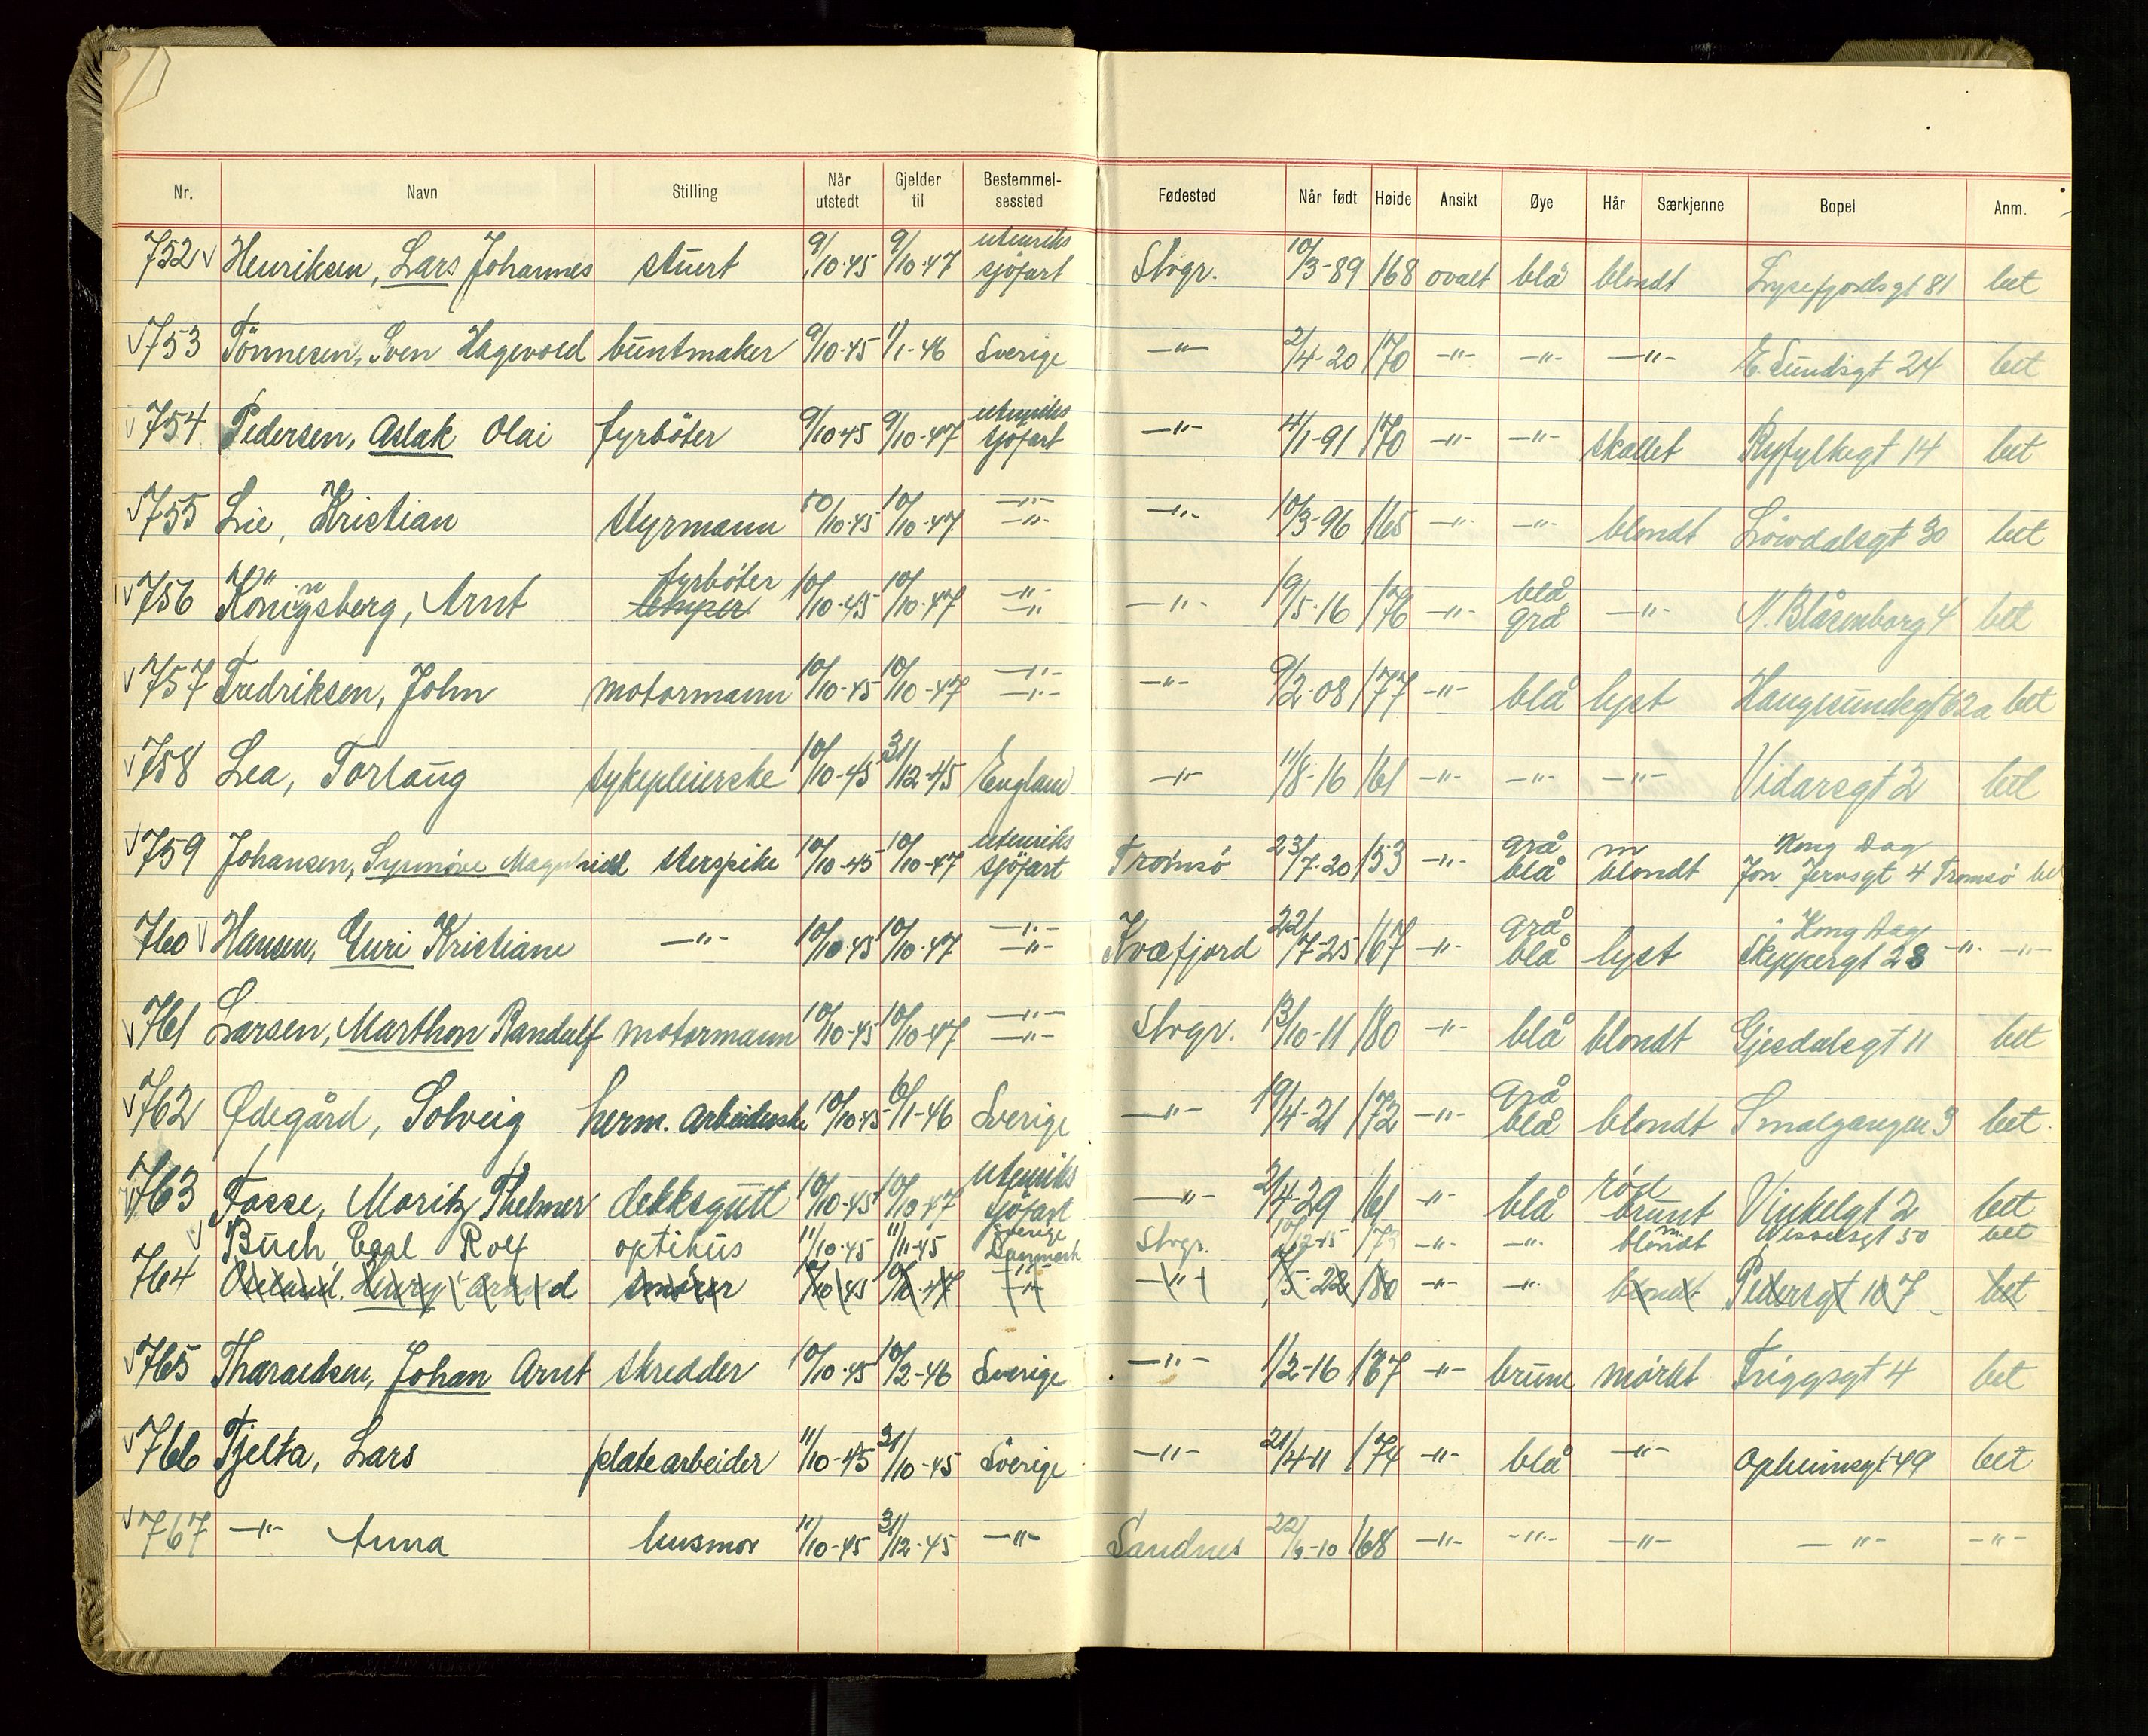 Nr. Navn Stilling Når utstedt Gjelder til Bestemmel-sessted Fødested Når født Høide Ansikt Øye Hår Særkjenne Bopel Anm.
752 √ Henriksen, Lars Johannes stuert 9/10-45 9/10-47 utenriks sjöfart Stvgr. 10/3-89 168 ovalt blå blondt Lysefjordsgt 81 bet
√ 753 Tönnesen, Sven Hagevold buntmaker 9/10-45 1/1-46 Sverige -"- 2/4-20 170 -"- -"- -"- Ø. Sundsgt 24 bet
√ 754 Pedersen, Aslak Olai fyrböter 9/10-45 9/10-47 utenriks sjöfart -"- 4/1-91 170 -"- -"- skallet Ryfylkegt 14 bet
√ 755 Lie, Kristian styrmann 10/10-45 10/10-47 -"- -"- -"- 10/3-96 165 -"- -"- blondt Lövdalsgt 30 bet
√ 756 Königsberg, Arnt fyrböter 10/10-45 10/10-47 -"- -"- -"- 19/5-16 176 -"- blå grå -"- N. Blåsenborg 4 bet
√ 757 Fredriksen, John motormann 10/10-45 10/10-47 -"- -"- -"- 9/2-08 177 -"- blå lyst Haugesundsgt 62a bet
√ 758 Lea, Torlaug sykepleierske 10/10-45 31/12-45 England -"- 11/8-16 161 -"- -"- -"- Vidarsgt 2 bet
√ 759 Johansen, Synnöve Magnhild sterspike 10/10-45 10/10-47 utenriks sjöfart Tromsö 23/7-20 153 -"- grå blå m blondt Kong Dag Jon Jernsgt 4 Tromsö bet
760 √ Hansen, Guri Kristiane -"- 10/10-45 10/10-47 -"- -"- Kvæfjord 22/7-25 167 -"- grå blå lyst Kong Dag Skippergt 28 -"- -"-
√ 761 Larsen, Marthon Randulf motormann 10/10-45 10/10-47 -"- -"- Stvgr. 13/10-11 180 -"- blå blondt Gjesdalsgt 11 bet
√ 762 Ødegård, Solveig herm. arbeiderske 10/10-45 10/1-46 Sverige -"- 19/4-21 172 -"- grå blå blondt Smalgangen 3 bet.
√ 763 Fosse, Moritz Thelmer dekksgutt 10/10-45 10/10-47 utenriks sjöfart -"- 2/4-29 161 -"- blå röde brunt Vinkelgt 2 bet
√ Buch Carl Rolf optikus 11/10-45 11/11-45 Sverige Danmark Stvgr. -"- -"- m. blondt bet
764 smörer 10/10-45 10/10-47 -"- -"- -"- 180 -"- -"- blondt Pedersgt 107 bet
√ 765 Tharaldsen, Johan Arnt skredder 10/10-45 10/2-46 Sverige -"- 1/2-16 167 -"- brune mörkt Friggsgt 4 bet
√ 766 Tjelta, Lars platearbeider 11/10-45 31/10-45 Sverige -"- 21/4-11 174 -"- blå -"- Opheimsgt 49 bet
√ 767 -"- Anna husmor 11/10-45 31/12-45 -"- Sandnes 22/9-10 168 -"- -"- -"- -"- -"-